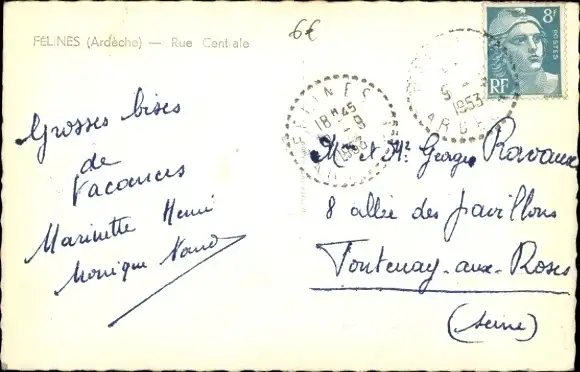 FÉLINES (Ardèche) — Rue Centrale
6€
8F
POSTES
RF
FELINES
18H45
9-9
1953
ARDECHE
9
1953
ARDE
Grosses bises
de
Vacances
Marinette Henri
Monique
Mme et Mr Georges Ravaux
8 allée des pavillons
Fontenay-aux-Roses
(Seine)